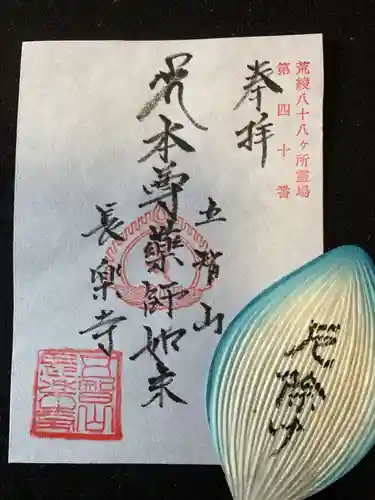 荒綾八十八ヶ所霊場
第四十番
奉拝
本尊薬師如来
山
長楽寺
厄除け